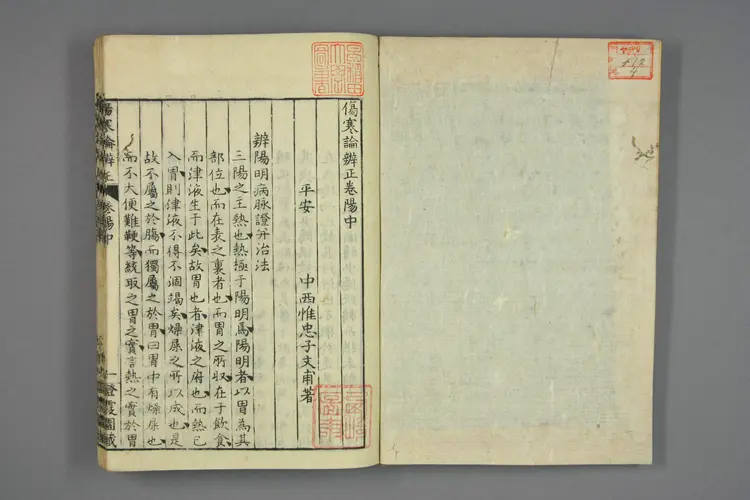 傷寒論辨正卷陽中
平安　中西惟忠子文甫著
辨陽明病脉證幷治法
三陽之主熱也熱極于陽明焉陽明者以胃為其
部位也而在表之裏者也而胃之所收在于飲食
而津液生于此矣故胃也者津液之府也而熱已
入胃則津液不得不涸竭矣燥屎之所以成也是
故不屬之於腸而獨屬之於胃曰胃中有燥屎也
而不大便難鞕等統取之胃之實言熱之實於胃
傷寒論辨正 卷陽中